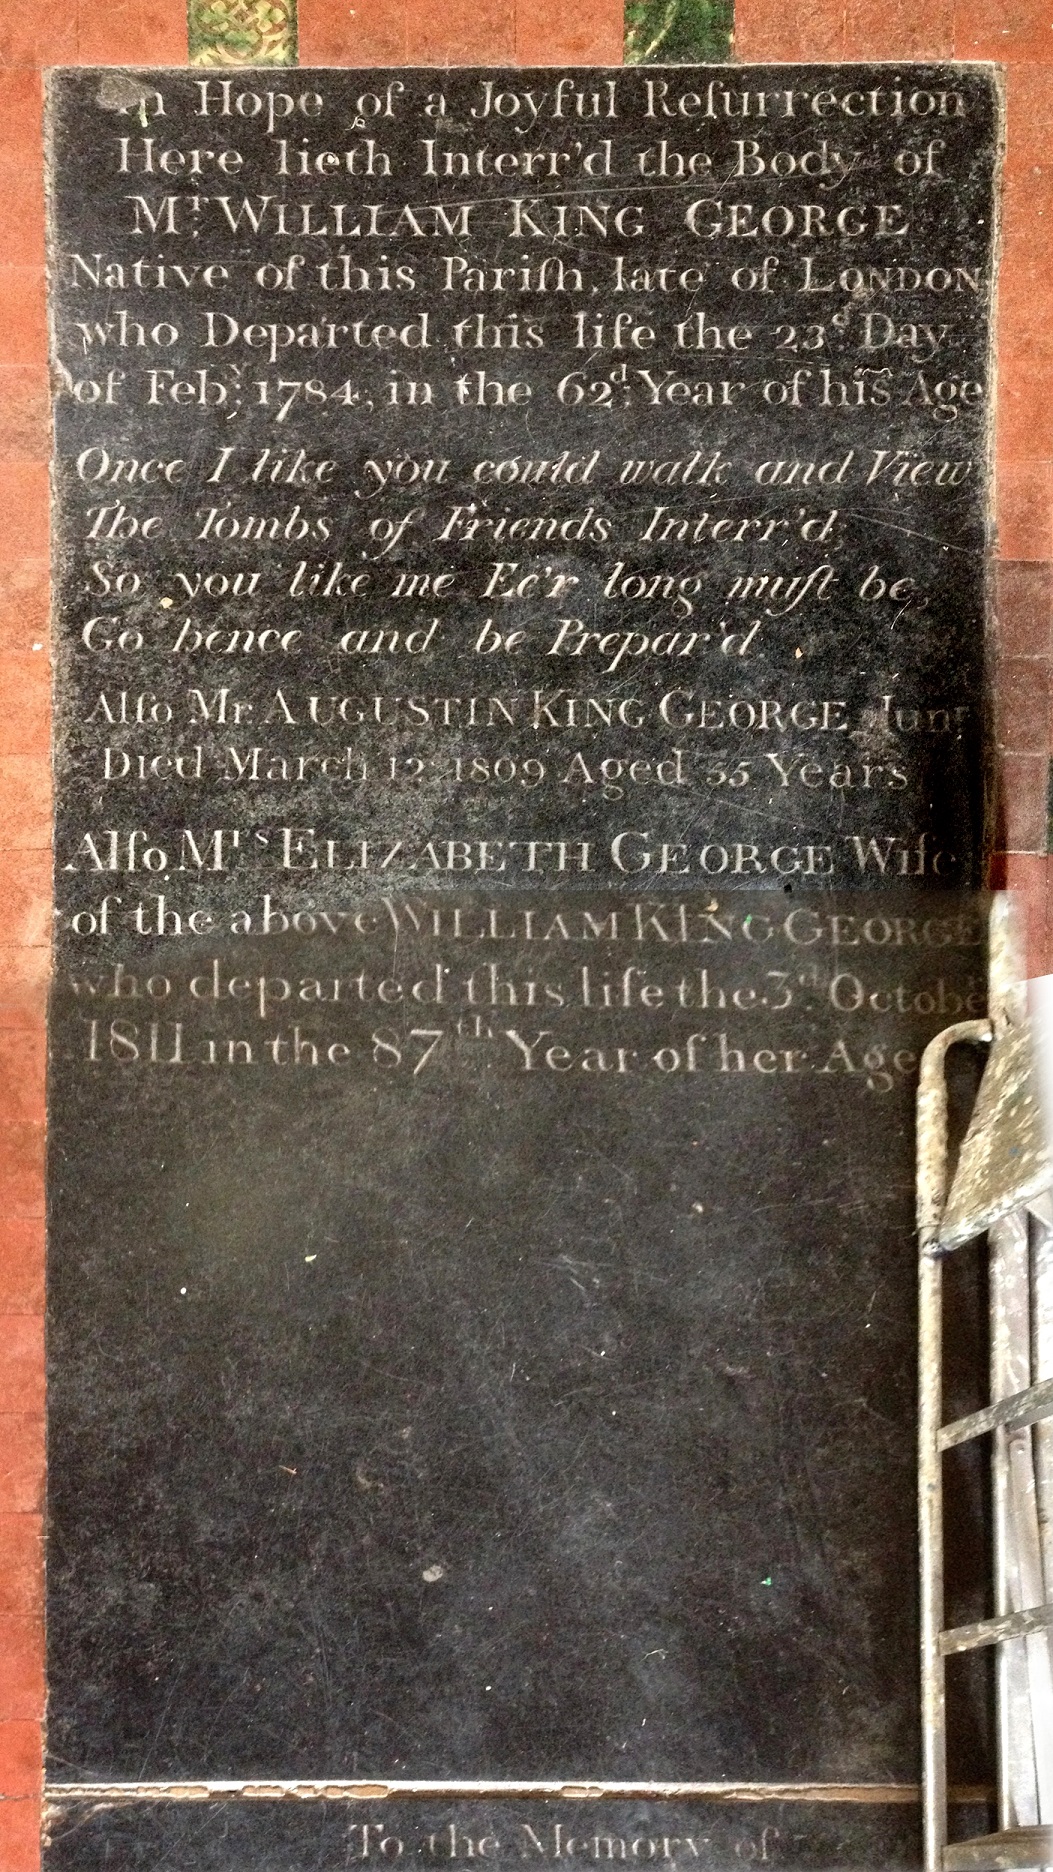 In Hope of a Joyful Reſurrection
Here lieth Interr'd the Body of
Mr. WILLIAM KING GEORGE
Native of this Pariſh, late of LONDON
who Departed this life the 23d. Day
of Feby. 1784, in the 62d. Year of his Age
Once I like you could walk and View
The Tombs of Friends Interr'd;
So you like me Ee'r long muſt be,
Go hence and be Prepar'd
Alſo Mr. AUGUSTIN KING GEORGE Junr
Died March 12 1809 Aged 55 Years
Alſo Mrs ELIZABETH GEORGE Wife
of the above WILLIAM KING GEORGE
who departed this life the 3rd. October
1811 in the 87th Year of her Age
To the Memory of